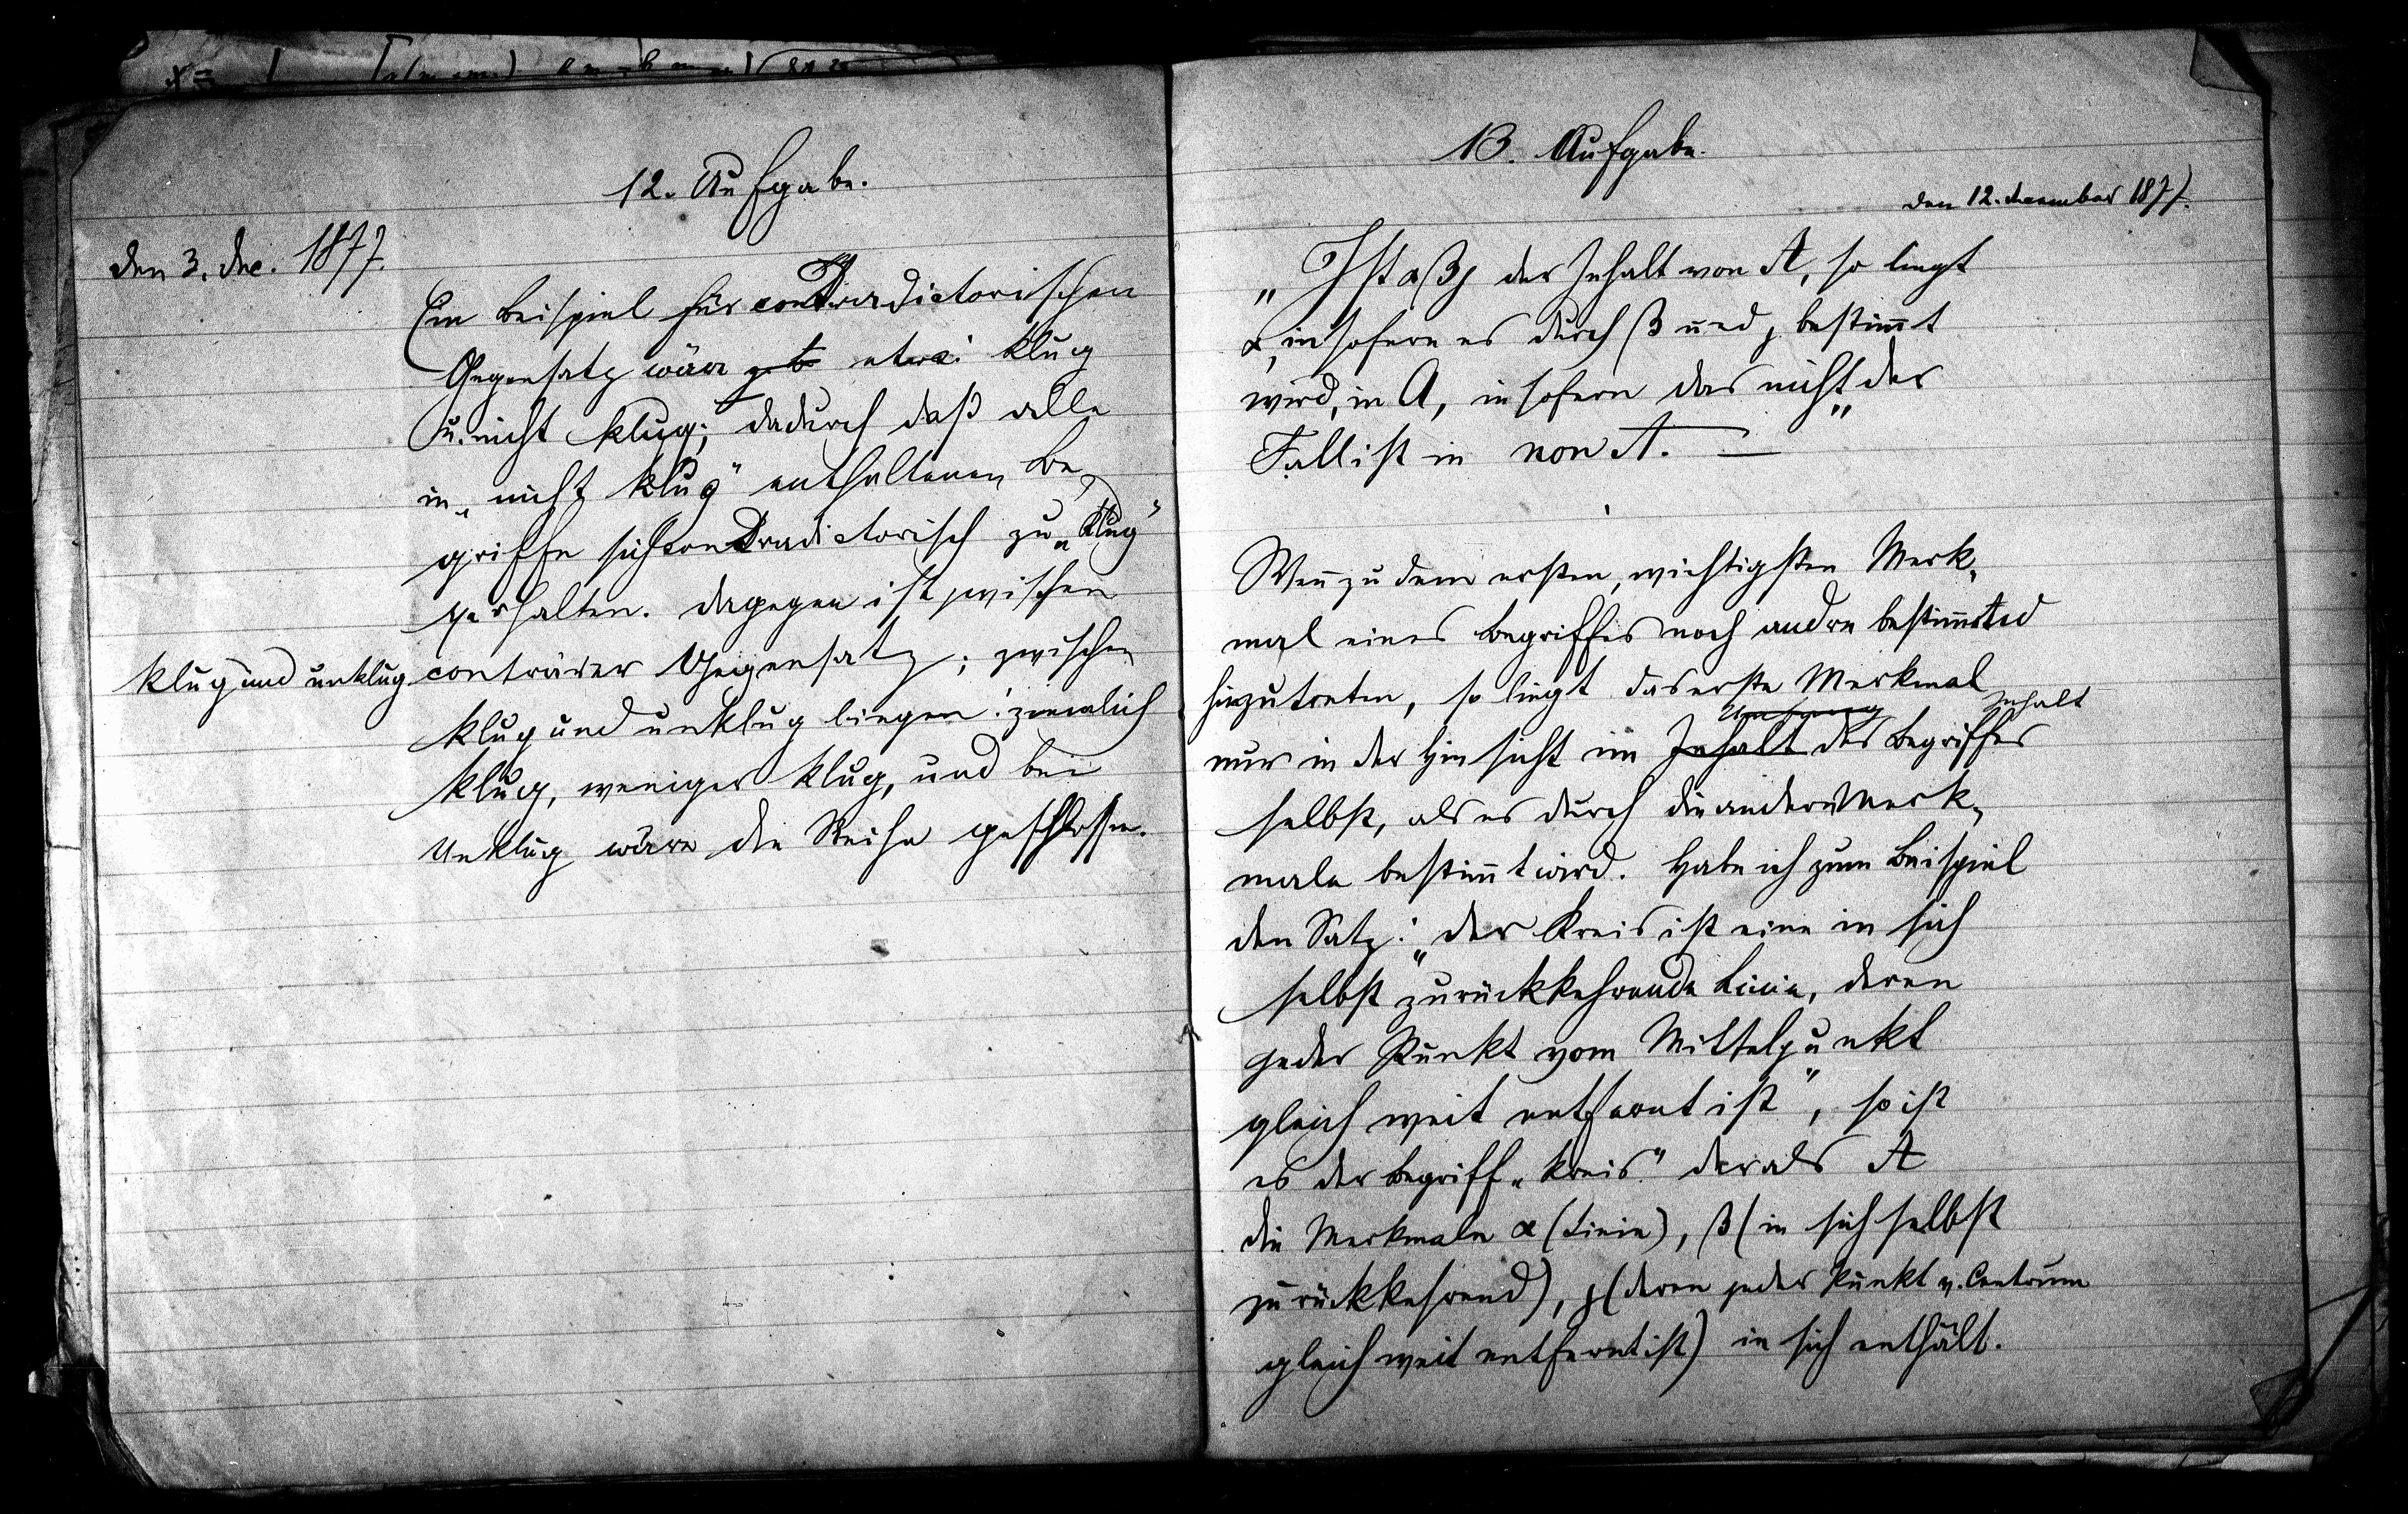 12. Aufgabe.
den 3. Dec. 1877.
Ein Beispiel für contradictorischen
Gegensatz wäre etwa: klug
u. nicht klug; dadurch daß alle
in „nicht klug" enthaltenen Be-
griffe sich contradictorisch zu „klug"
verhalten. Dagegen ist zwischen
klug und unklug conträrer Gegensatz; zwischen
klug und unklug liegen: ziemlich
klug, weniger klug, und bei
Unklug wäre die Reihe geschlossen.
13. Aufgabe.
den 12. December 1877.
„Ist αβγ der Inhalt von A, so liegt
α, insofern es durch β und γ bestim̄t
wird, in A, insofern das nicht der
Fall ist in non A." —
Wen̄ zu dem ersten, wichtigsten Merk-
mal eines Begriffes noch andre bestim̄ted
hinzutreten, so liegt das erste Merkmal
Umfang Inhalt
nur in der Hinsicht im Inhalt des Begriffes
selbst, als es durch die andern Merk-
male bestim̄t wird. Habe ich zum Beispiel
den Satz: „der Kreis ist eine in sich
selbst zurückkehrende Linie, deren
jeder Punkt vom Mittelpunkt
gleich weit entfernt ist", so ist
es der Begriff „Kreis" der als A
die Merkmale α (Linie), β (in sich selbst
zurückkehrend), γ (deren jeder Punkt v. Centrum
gleich weit entfernt ist) in sich enthält.